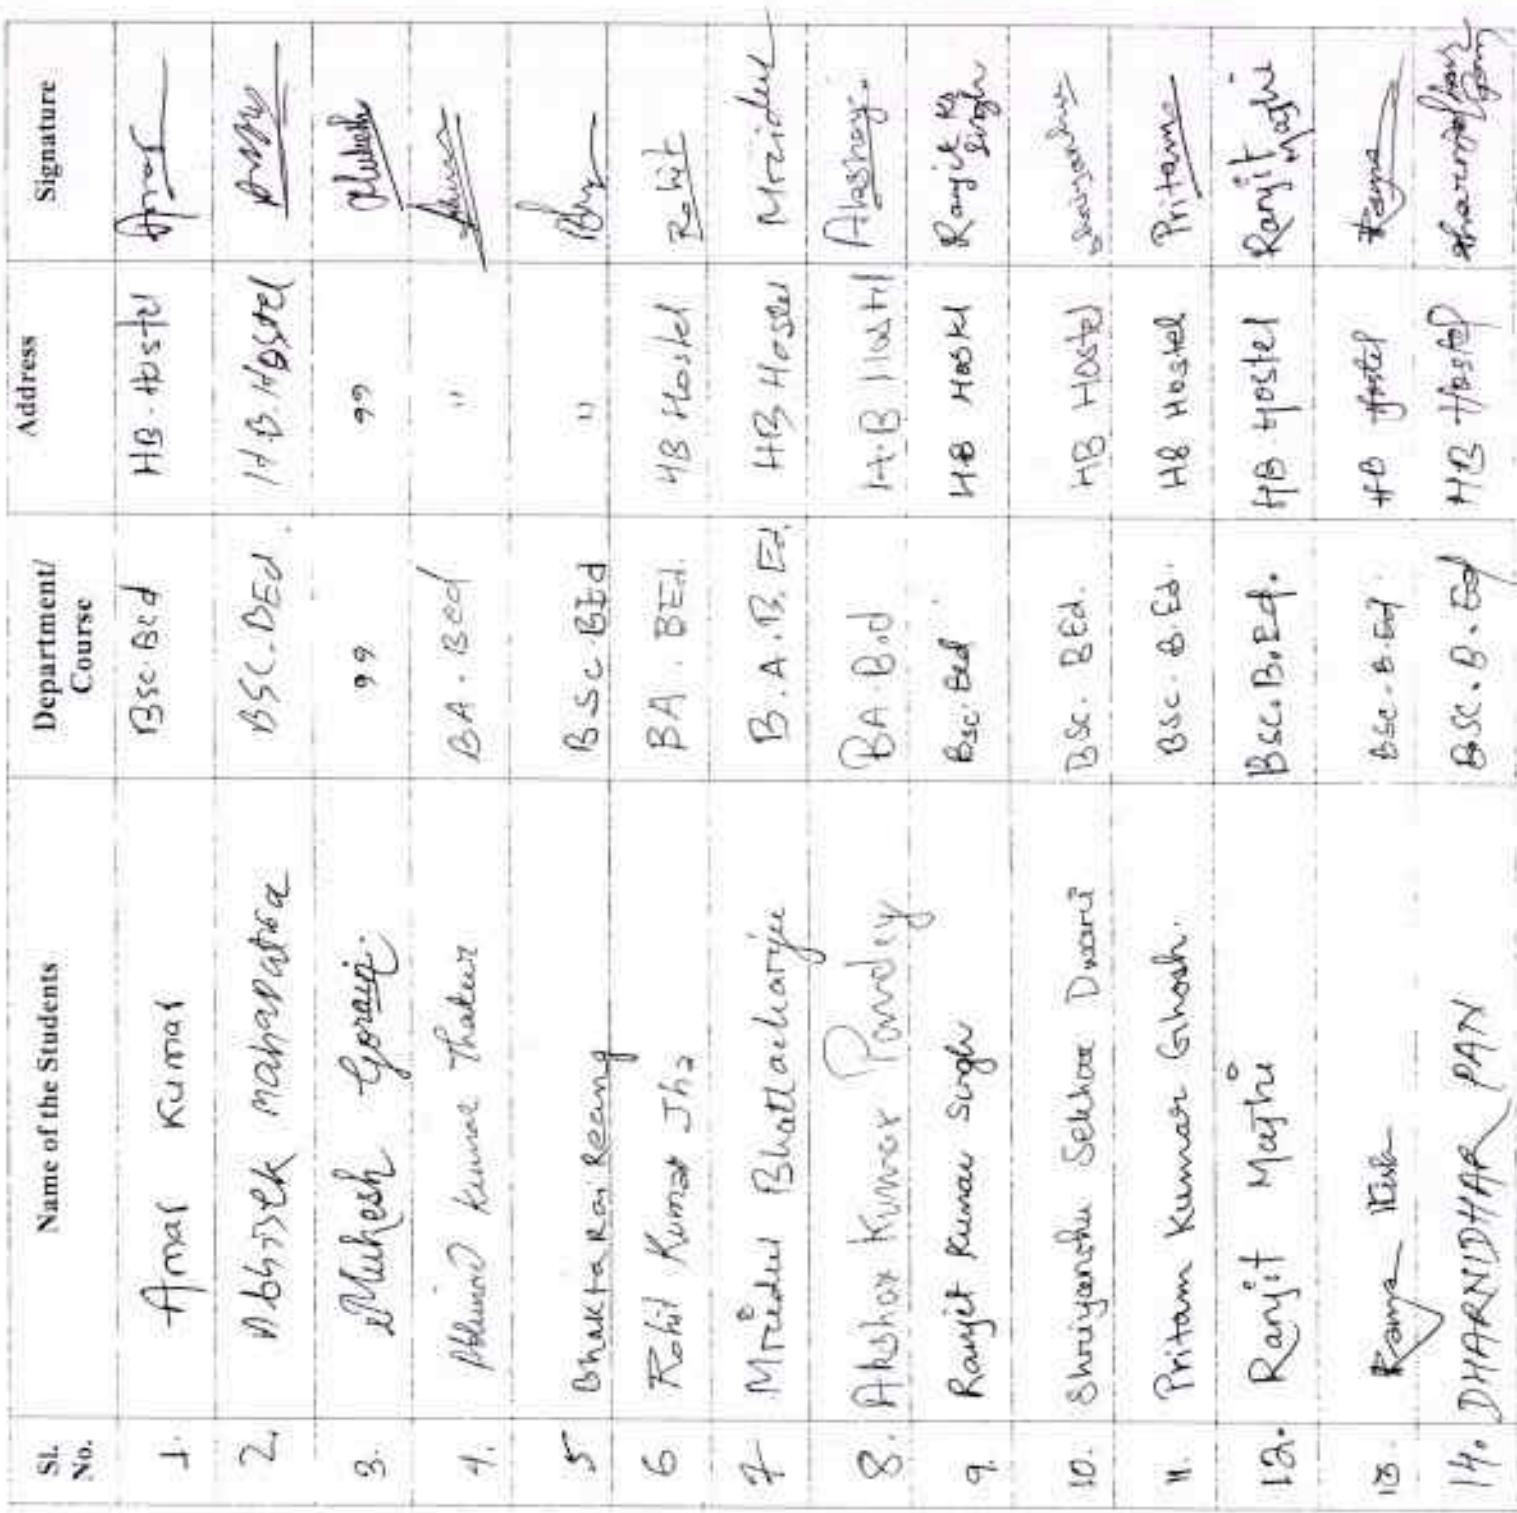 Sl. No. Name of the Students Department/ Course Address Signature
1. Amar Kumar Bsc.Bed HB-Hostel Amar
2. Abhisek Mahapatra BSC.BEd. H.B.Hostel
3. Mukesh Gorain. " " Mukesh
4. Abhinav Kumar Thakur BA.Bed "
5 Bhakta Rai Reang BSc.BEd "
6 Rohit Kumar Jha BA.BEd. HB Hostel Rohit
7 Mridul Bhattacharjee B.A.B.Ed. HB Hostel Mridul
8. Akshay Kumar Pandey BA.B.d H.B Hostel Akshay
9. Ranjit Kumar Singh Bsc.Bed HB Hostel Ranjit Kr Singh
10. Shreiyanshu Sekhar Dwari BSc. BEd. HB Hostel Shreiyanshu
11. Pritam Kumar Ghosh. BSc. B.Ed. HB Hostel Pritam
12. Ranjit Majhi Bsc.B.Ed. HB Hostel Ranjit Majhi
13. BSc.B.Ed HB Hostel
14. DHARNIDHAR PAN BSC.B.Ed HB Hostel